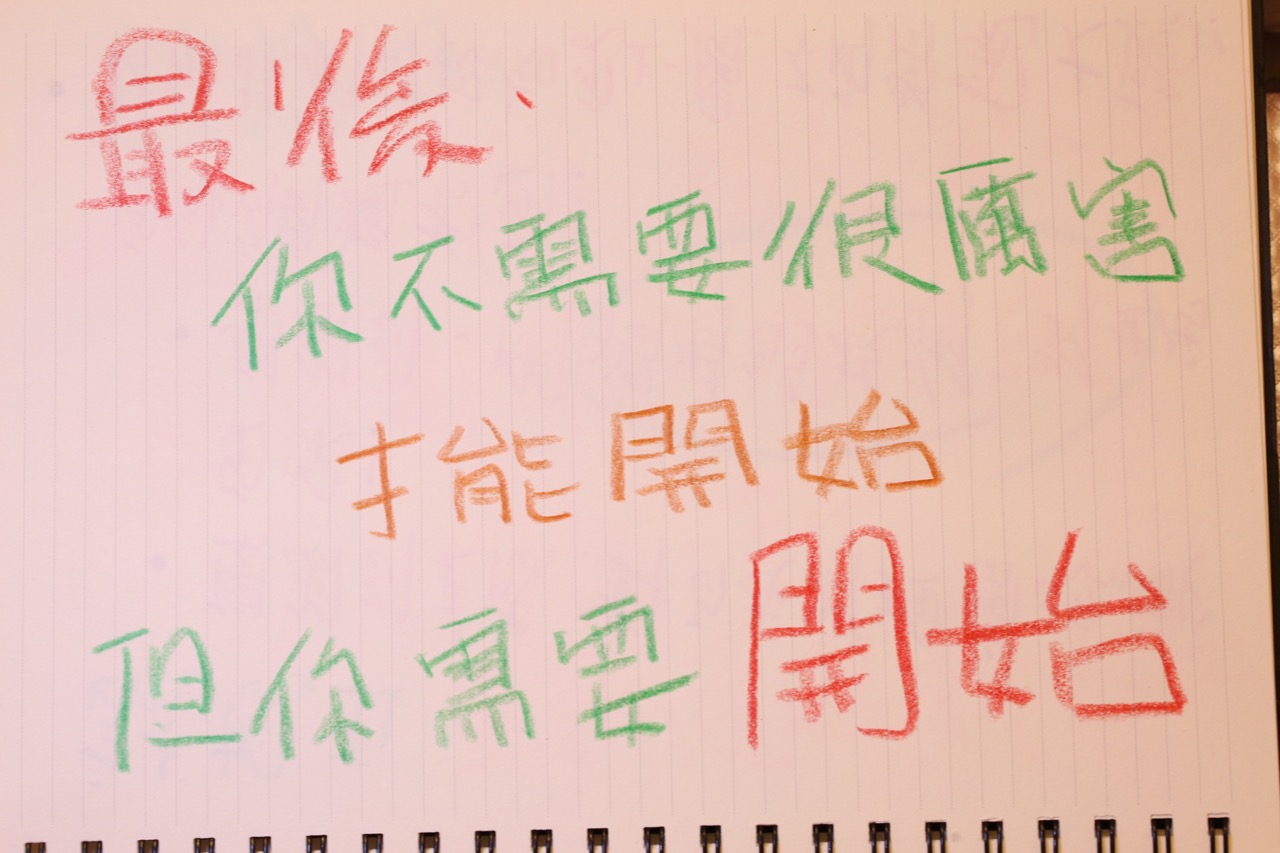 最後、
你不需要很厲害
才能開始
但你需要開始